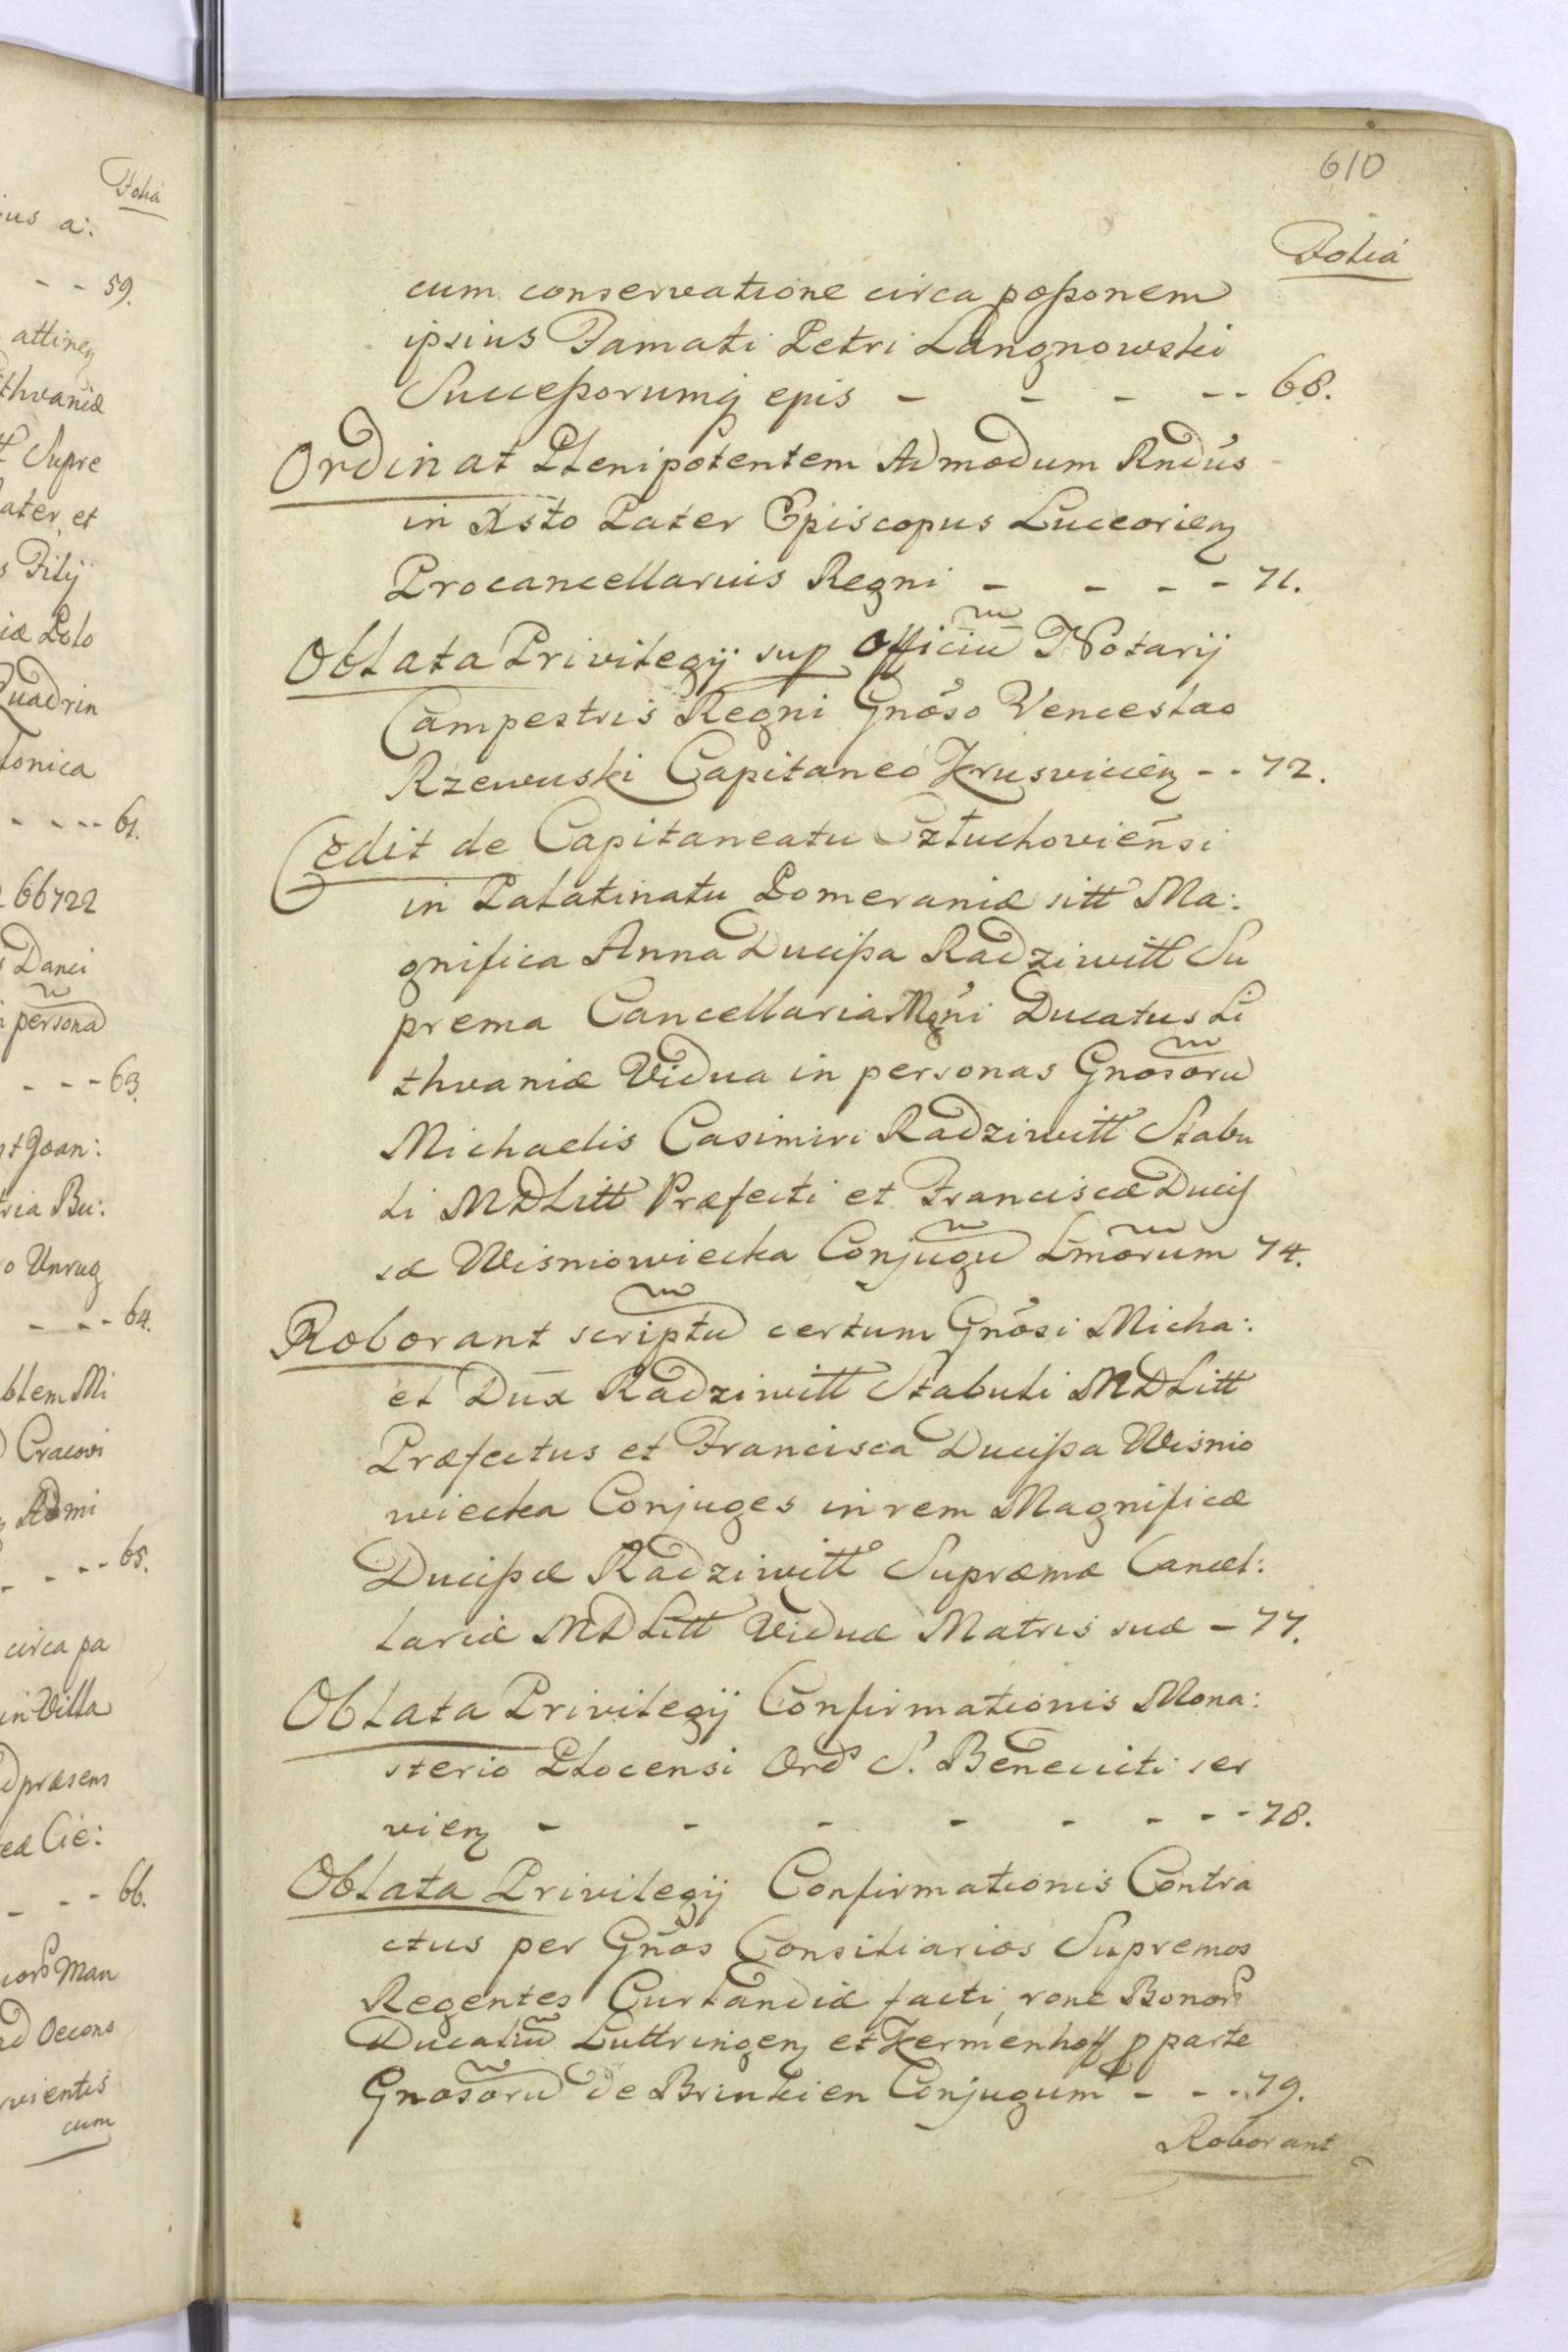 Folia
ius a:
- - 59.
attinen
thvaniæ
Supre
ater et
s Filij
iæ Polo
Quadrin
lonica
- - - - 61.
66722
s Danci
n persona
- - - 63.
st Joan:
ria Bu:
o Unrug
- - - 64.
blem Mi
Cracovi
Admi
- - - - 65.
circa pa
in Villa
præsens
ea Cie:
- - - 66.
Man
ad Oecono
vientis
cum
610
Folia
cum conservatione circa poßonem
ipsius Famati Petri Langnowski
Succeßorumq epis - - - - - 68.
Ordinat Plenipotentem Admodum Rndus
in Xsto Pater Episcopus Luceorien
Procancellarius Regni - - - - 71.
Oblata Privilegij sup Officiu Notarij
Campestris Regni Gnoso Venceslao
Rzewuski Capitaneo Krusvicien - - 72.
Cedit de Capitaneatu Człuchoviensi
in Palatinatu Pomeraniæ sitt Ma:
gnifica Anna Ducißa Radziwiłł Su
prema Cancellaria Mgni Ducatus Li
thvaniæ Vidua in personas Gnosoru
Michaelis Casimiri Radziwiłł Stabu
li MDLitt Præfecti et Franciscæ Duciß
æ Wisniowiecka Conjugu Lmorum 74.
Roborant scriptu certum Gnosi Micha:
el Dux Radziwiłł Stabuli MDLitt
Præfectus et Francisca Ducißa Wisnio
wiecka Conjuges in rem Magnificæ
Ducißæ Radziwiłł Supræmæ Cancel:
lariæ MDLitt Viduæ Matris suæ - 77.
Oblata Privilegij Confirmationis Mona:
sterio Plocensi Ord S. Benedicti ser
vien - - - - - - - - 78.
Oblata Privilegij Confirmationis Contra
ctus per Gnos Consiliarios Supremos
Regentes Curlandiæ facti rone Bonor
Ducaliu Luttringen et Kermenhoff p parte
Gnosoru de Brinkien Conjugum - - - 79.
Roborant